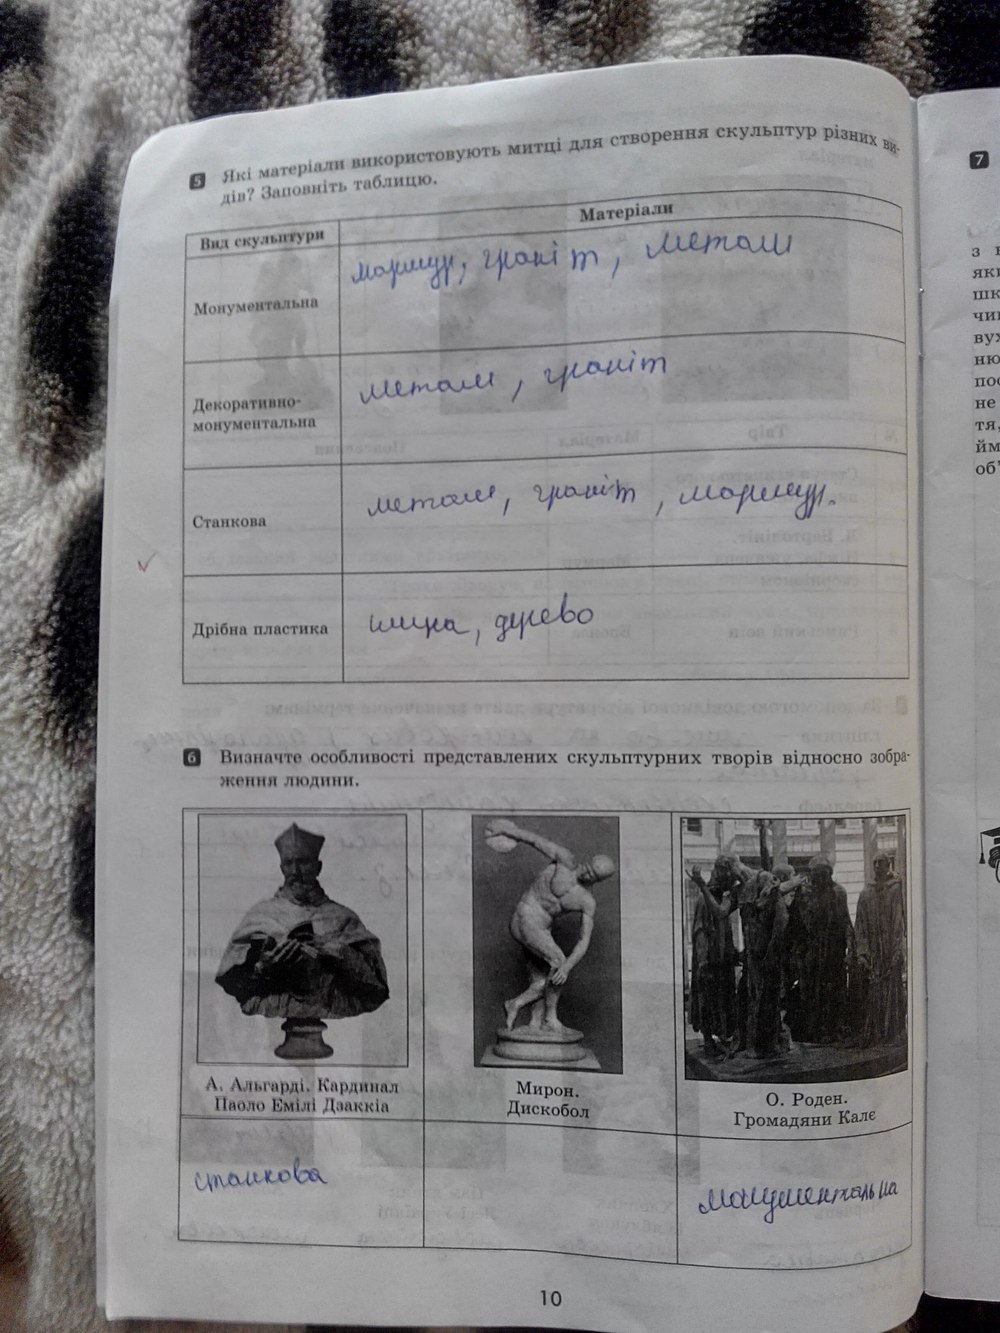 5 Які матеріали використовують митці для створення скульптур різних ви-
дів? Заповніть таблицю.
Вид скульптури Матеріали
Монументальна мармур, граніт, метали
Декоративно-
монументальна метали, граніт
Станкова метали, граніт, мармур.
Дрібна пластика глина, дерево
6 Визначте особливості представлених скульптурних творів відносно зобра-
ження людини.
А. Альгарді. Кардинал
Паоло Емілі Дзаккіа
Мирон.
Дискобол
О. Роден.
Громадяни Кале
станкова монументальна
10
7
з
які
шк
чи
вух
ню
пос
не
тя,
йм
об'